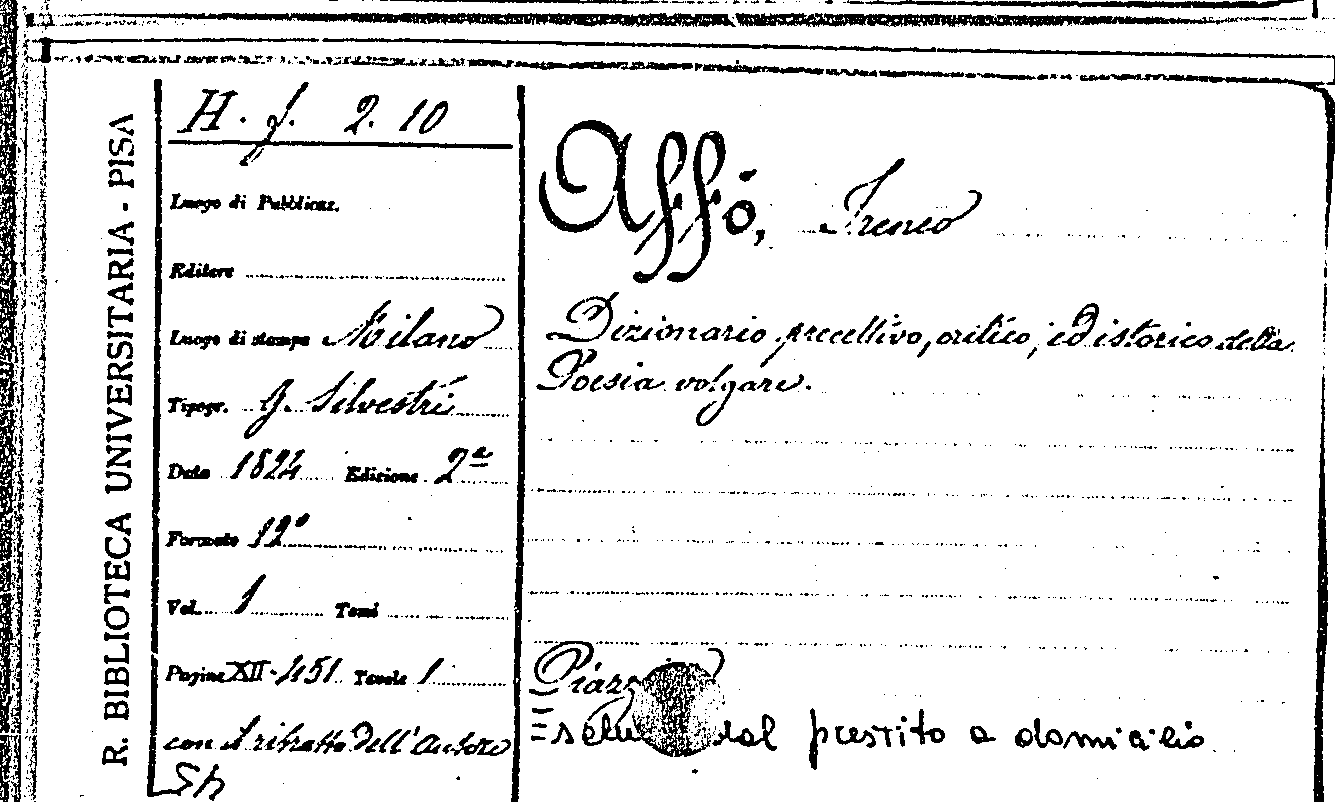 R. BIBLIOTECA UNIVERSITARIA - PISA
H. f. 2. 10
Luogo di Pubblicaz.
Editore
Luogo di stampa Milano
Tipogr. G. Silvestri
Data 1824 Edizione 2ª
Formato 12º
Vol. 1 Tomi
Pagine XII-451 Tavole 1
con il ritratto dell'Autore
Affò, Ireneo
Dizionario precettivo, critico, ed istorico della
Poesia volgare.
dal prestito a domicilio